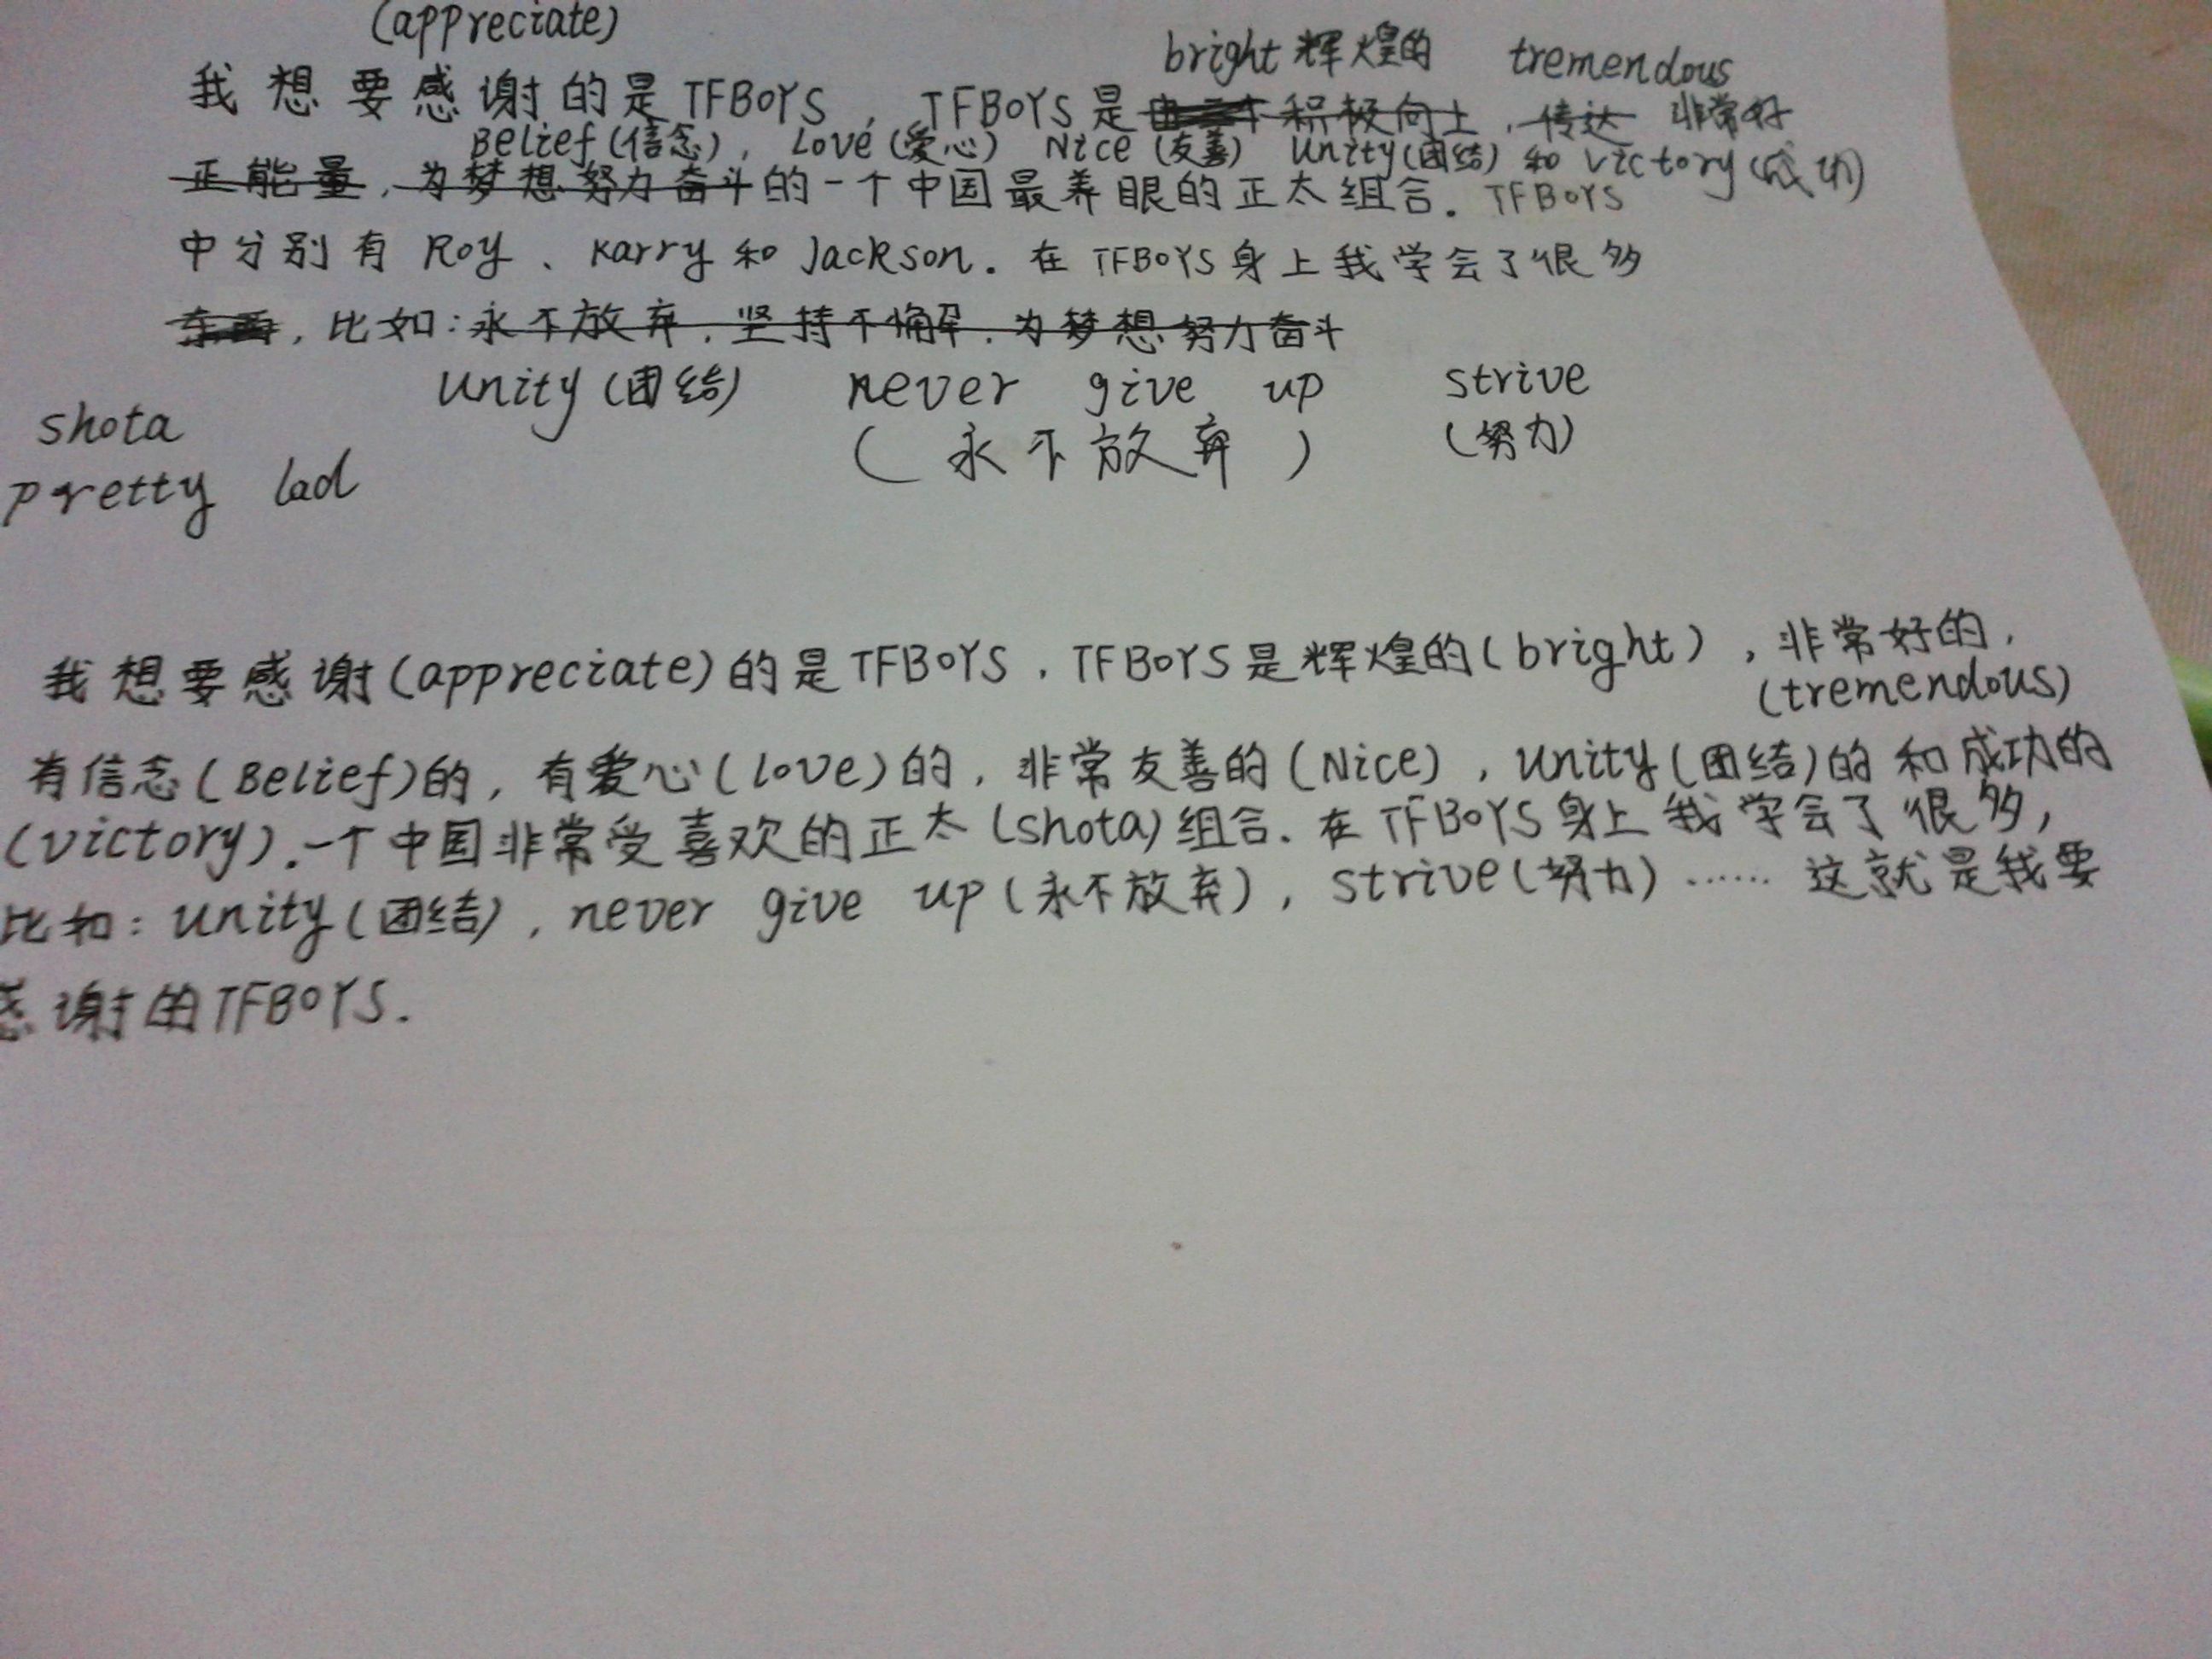 (appreciate)
bright 辉煌的 tremendous
我想要感谢的是TFBOYS，TFBOYS是 积极向上，传达 非常好
Belief(信念)，Love(爱心) Nice(友善) Unity(团结) 和 victory(成功)
正能量，为梦想努力奋斗的一个中国最养眼的正太组合. TFBOYS
中分别有 Roy、Karry 和 Jackson. 在TFBOYS身上我学会了很多
东西，比如：永不放弃，坚持不懈，为梦想努力奋斗
Unity(团结) never give up strive
shota (永不放弃) (努力)
pretty lad
我想要感谢(appreciate)的是TFBOYS，TFBOYS是辉煌的(bright)，非常好的，
(tremendous)
有信念(Belief)的，有爱心(love)的，非常友善的(Nice)，Unity(团结)的 和成功的
(victory).一个中国非常受喜欢的正太(shota)组合. 在TFBOYS身上我学会了很多，
比如：unity(团结)，never give up(永不放弃)，strive(努力)……这就是我要
感谢的TFBOYS.